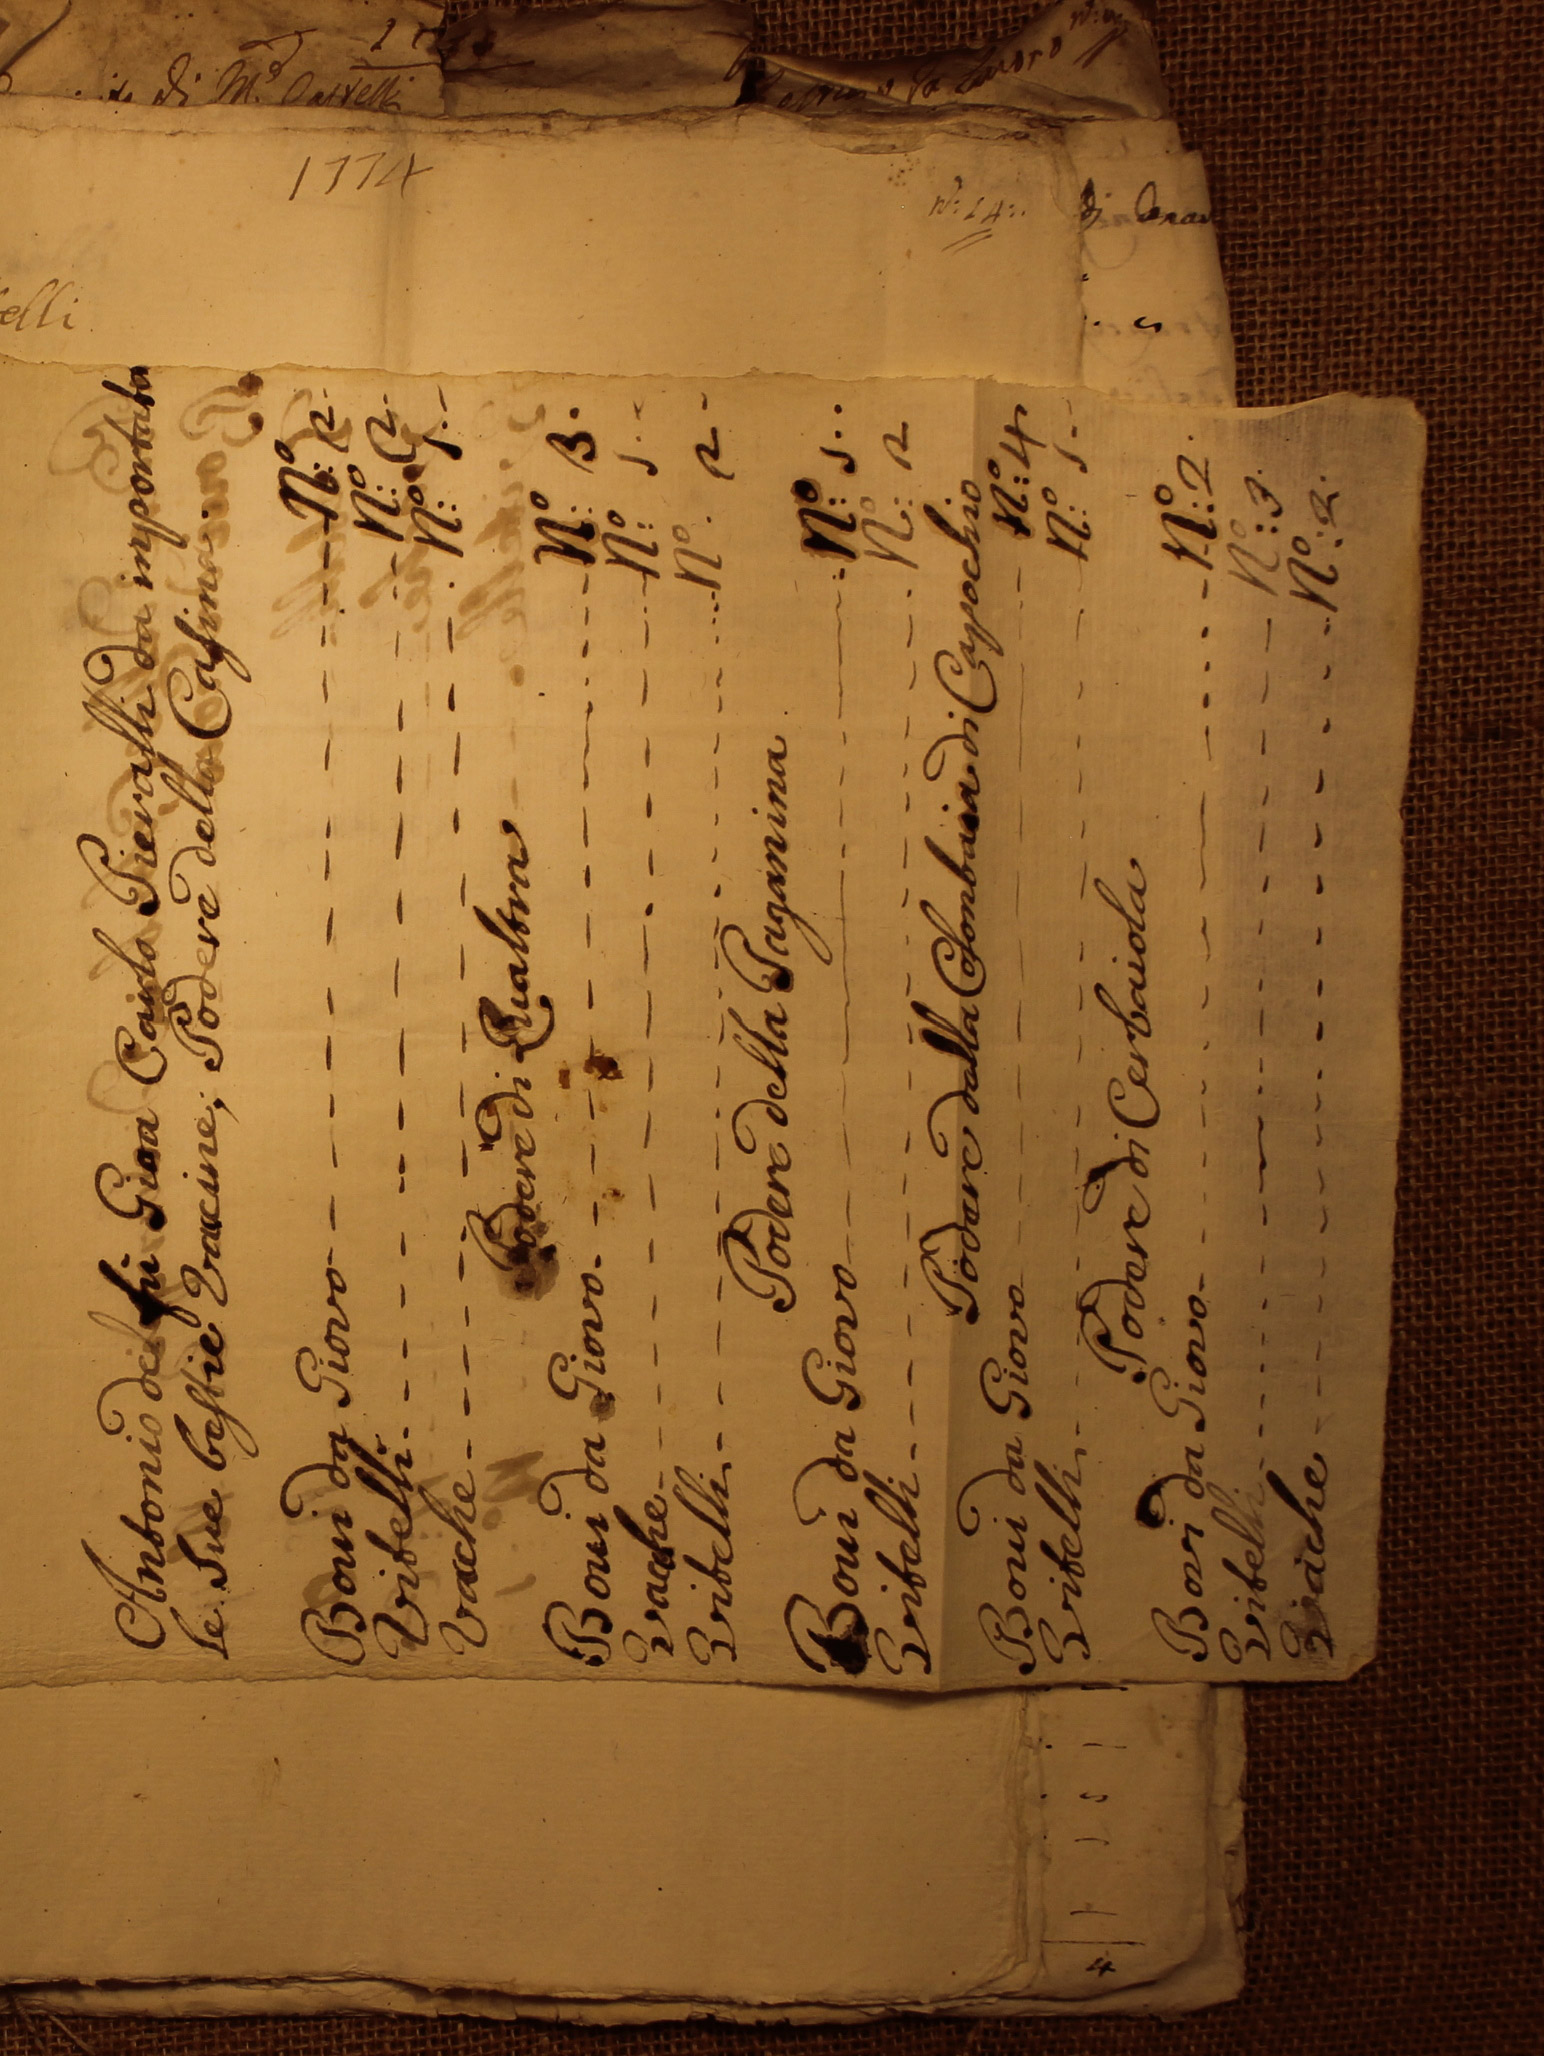 di M.º Castelli
1774
N: 14:
elli
Antonio del fù Gioa Carlo Pieralli da importata
le Sue bestie Vaccine; Podere della Casina
Bovi da Giovo N.º: 2.
Vitelli N.º: 2.
Vache N.º: 1.
Podere di Lualtra
Bovi da Giovo N.º: 3.
Vache N.º: 1.
Vitelli N.º. 2
Podere della Paganina
Bovi da Giovo N.º: 1.
Vitelli N.º: 2
Podere dalla Colonbaia di Capochio
Bovi da Giovo N.º: 4
Vitelli N.º: 1.
Podere di Cerbaiola
Bovi da Giovo N.º: 2.
Vitelli N.º: 3.
Vache N.º: 2.